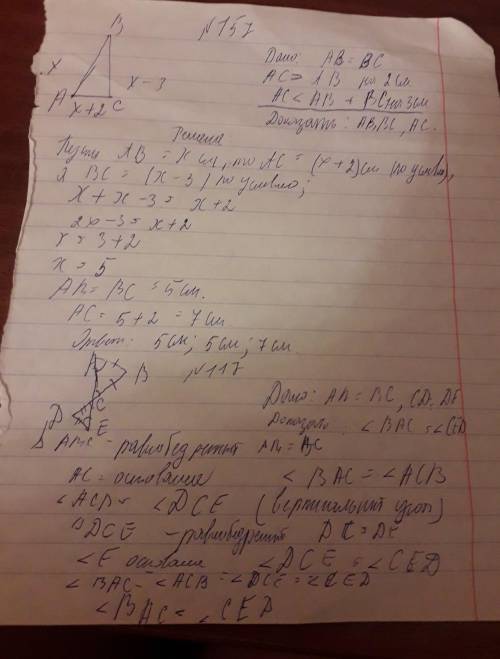 №157
B
x
x-3
A
x+2 C
Дано: AB = BC
AC > AB на 2см
AC < AB + BC на 3см
Доказать: AB, BC, AC.
Решена
Пусть AB = x см, то AC = (x+2)см по условию,
а BC = (x-3) по условию;
x + x - 3 = x + 2
2x - 3 = x + 2
x = 3+2
x = 5
AB = BC = 5 см.
AC = 5+2 = 7 см
Ответ: 5см; 5см; 7см.
№117
A
B
C
D
E
Дано: AB = BC, CD = DE
Доказать: ∠BAC = ∠CED
Δ ABC - равнобедренный AB = BC
AC = основание ∠BAC = ∠ACB
∠ACB = ∠DCE (вертикальный угол)
ΔDCE - равнобедренный DC = DE
∠E основание ∠DCE = ∠CED
∠BAC = ∠ACB = ∠DCE = ∠CED
∠BAC = ∠CED